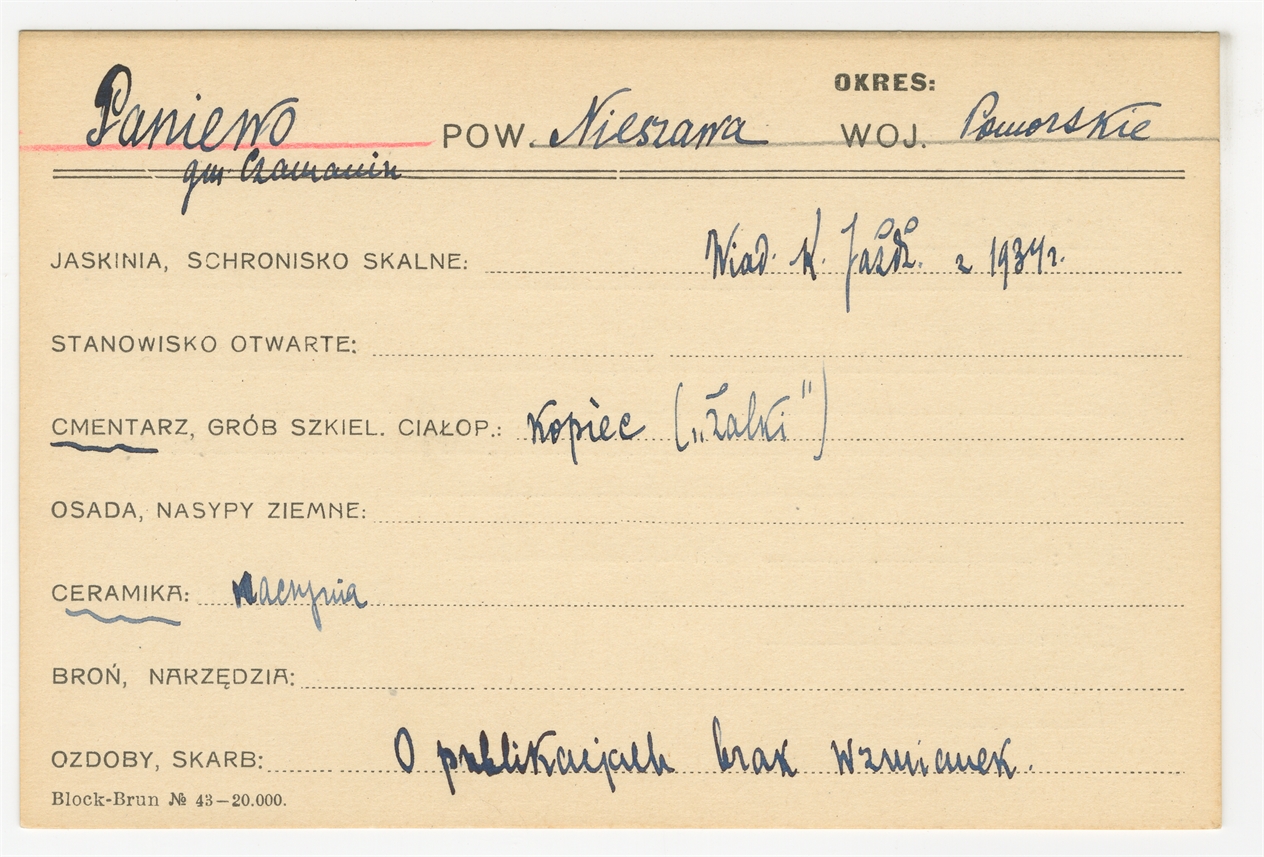 OKRES:
Paniewo POW. Nieszawa WOJ. Pomorskie
gm. Czamanin
JASKINIA, SCHRONISKO SKALNE: Wiad. K. Jażdż. z 1934 r.
STANOWISKO OTWARTE:
CMENTARZ, GRÓB SZKIEL. CIAŁOP.: Kopiec („Żalki")
OSADA, NASYPY ZIEMNE:
CERAMIKA: naczynia
BROŃ, NARZĘDZIA:
OZDOBY, SKARB: O publikacjach brak wzmianek.
Block-Brun № 43—20.000.